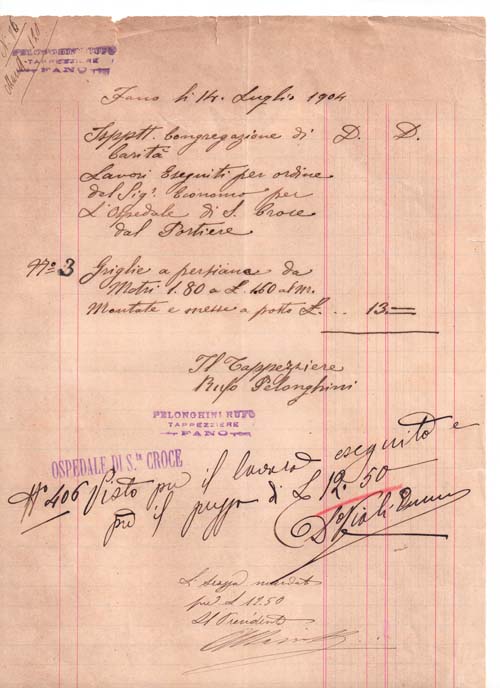 N. 16
PELONGHINI RUFO
TAPPEZZIERE
FANO
Fano li 14. Luglio 1904
Isptt. Congregazione di D. D.
Carità
Lavori Eseguiti per ordine
del Sigr. Economo per
L'Ospedale di S. Croce
dal Portiere
No 3 Griglie a persiana da
Metri 1.80 a £. 1.50 al m.
Montate e messe a posto £. .. 13.=
Il Tappezziere
Rufo Pelonghini
PELONGHINI RUFO
TAPPEZZIERE
FANO
OSPEDALE DI S.ta CROCE
No 406 Visto per il lavoro eseguito e
per il prezzo di £ 12.50
Si mandato
per £ 12.50
Il Presidente